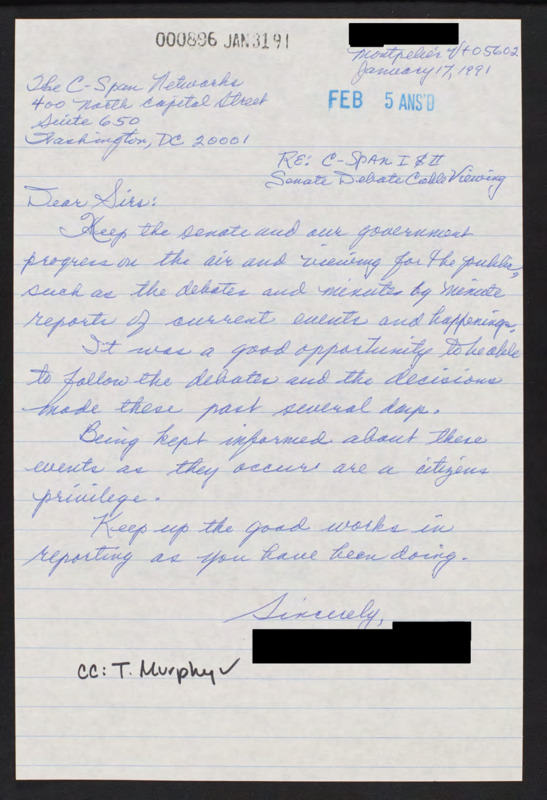 000896 JAN 31 91
Montpelier Vt 05602
January 17, 1991
FEB 5 ANS'D
The C-Span Networks
400 North Capitol Street
Suite 650
Washington, DC 20001
RE: C-SPAN I & II
Senate Debate Cable Viewing
Dear Sirs:
Keep the senate and our government
progress on the air and viewing for the public,
such as the debates and minutes by minute
reports of current events and happenings.
It was a good opportunity to be able
to follow the debates and the decisions
made these past several days.
Being kept informed about these
events as they occur are a citizens
privilege.
Keep up the good works in
reporting as you have been doing.
Sincerely,
cc: T. Murphy ✓